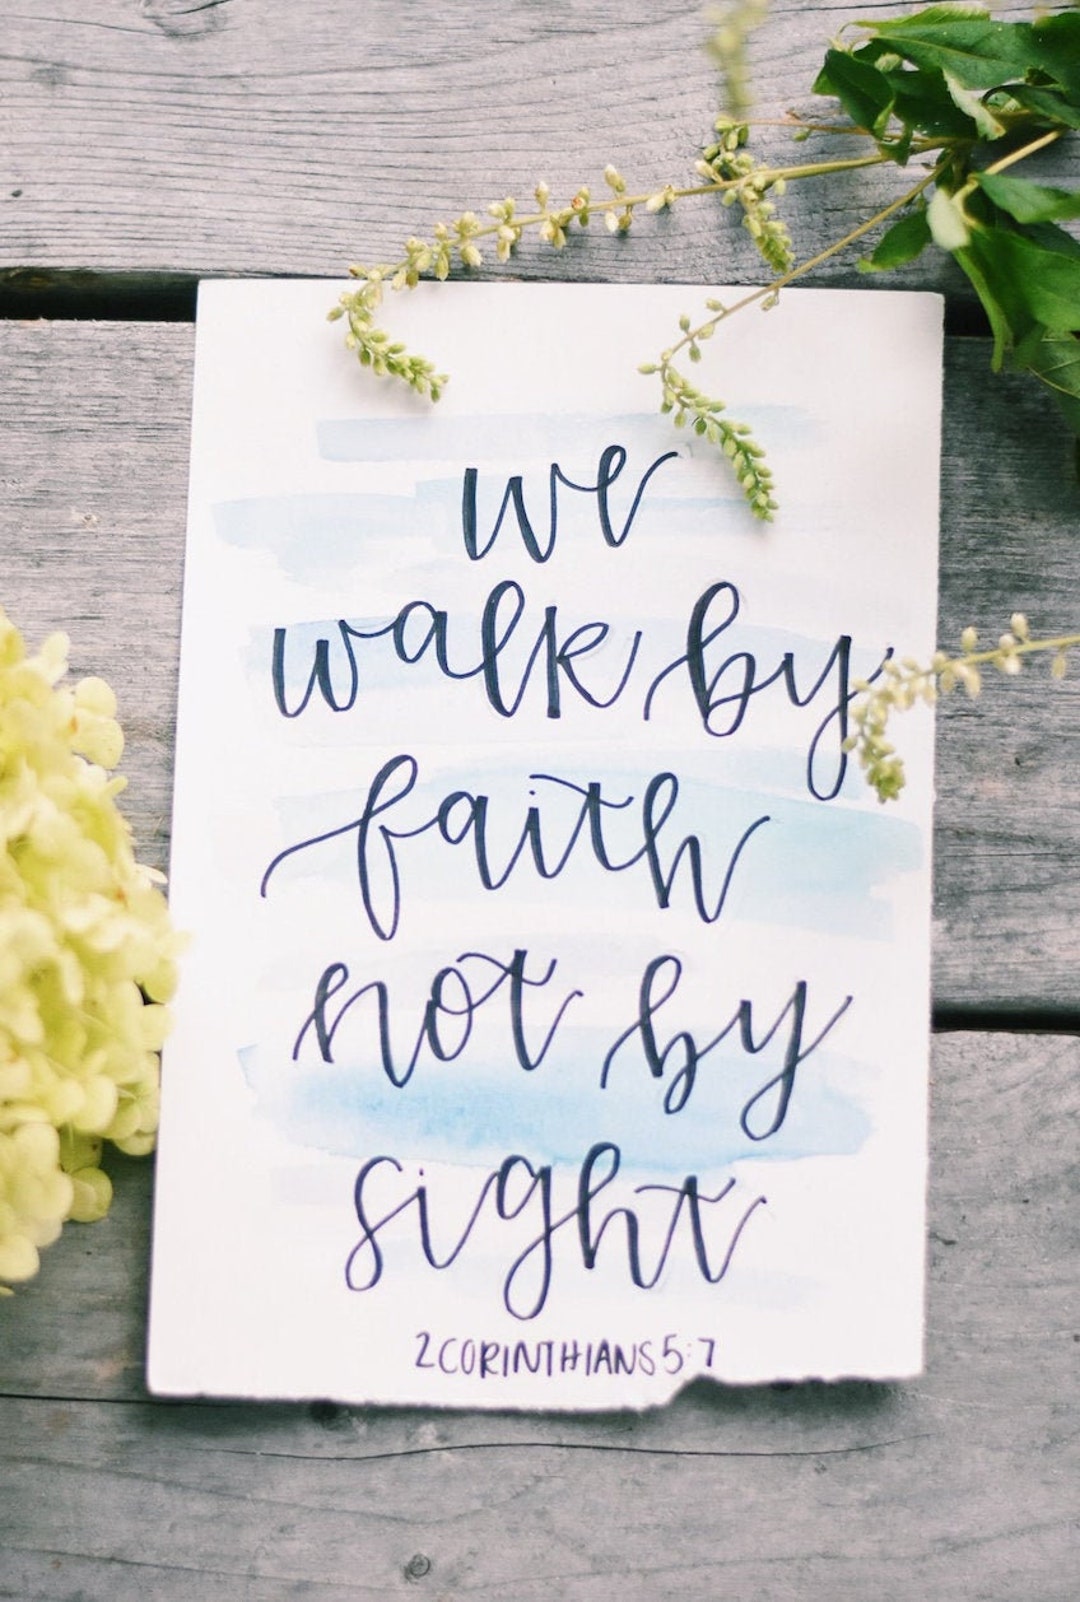 we
walk by
faith
not by
sight
2 CORINTHIANS 5:7